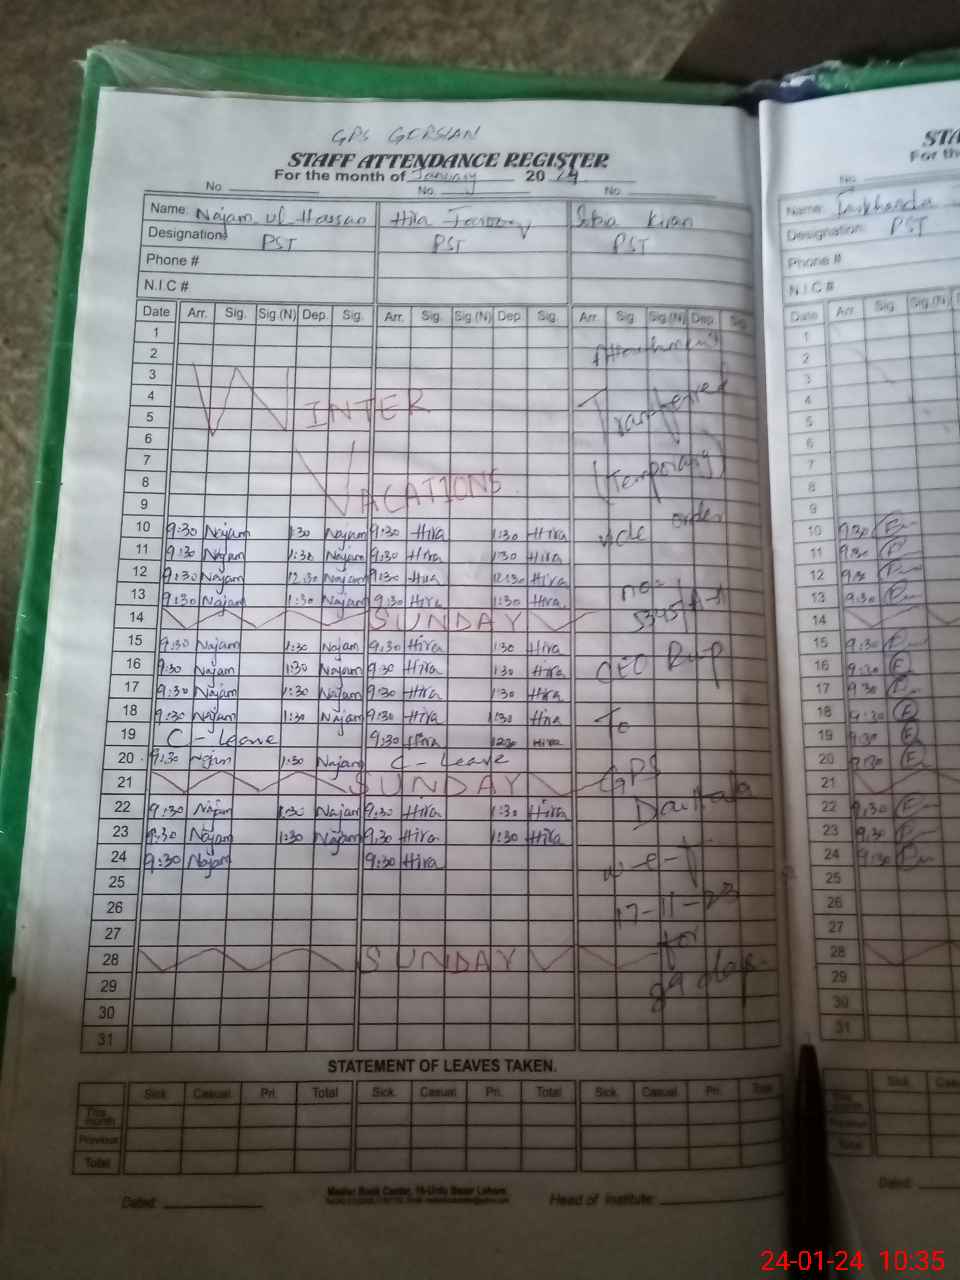 GPS GORSIAN
STAFF ATTENDANCE REGISTER
For the month of January 2024
No No. No.
Name: Najam ul Hassan Hira Kiran
Designation: PST PST PST
Phone #
N.I.C #.
Date Arr. Sig. Sig.(N) Dep. Sig. Arr. Sig. Sig.(N) Dep. Sig. Arr. Sig. Sig.(N) Dep. Sig.
1
2 Attachment
3
4 WINTER Transferred
5
6
7 (Temporary)
8 VACATIONS
9
10 9:30 Najam 1:30 Najam 9:30 Hira 1:30 Hira vide order
11 9:30 Najam 1:30 Najam 9:30 Hira 1:30 Hira
12 9:30 Najam 12:30 Najam 9:30 Hira 12:30 Hira
13 9:30 Najam 1:30 Najam 9:30 Hira 1:30 Hira no=
14 SUNDAY
15 9:30 Najam 1:30 Najam 9:30 Hira 1:30 Hira
16 9:30 Najam 1:30 Najam 9:30 Hira 1:30 Hira CEO Rwp
17 9:30 Najam 1:30 Najam 9:30 Hira 1:30 Hira
18 9:30 Najam 1:30 Najam 9:30 Hira 1:30 Hira To
19 C - Leave 9:30 Hira 12:30 Hira
20 9:30 Najam 1:30 Najam C - Leave
21 SUNDAY GPS
22 9:30 Najam 1:30 Najam 9:30 Hira 1:30 Hira
23 9:30 Najam 1:30 Najam 9:30 Hira 1:30 Hira
24 9:30 Najam 9:30 Hira w-e-f
25
26 17-11-23
27 for
28 SUNDAY
29 89 days
30
31
STATEMENT OF LEAVES TAKEN.
Sick. Casual. Pri. Total Sick. Casual. Pri. Total Sick. Casual. Pri. Total
This month
Previous
Total
Dated: Master Book Center, Urdu Bazar Lahore. Head of Institute:
STA
For th
No.
Name: Farkhanda
Designation: PST
Phone #
N.I.C #
Date Arr. Sig. Sig.(N)
1
2
3
4
5
6
7
8
9
10 9:30
11 9:30
12 9:30
13 9:30
14
15 9:30
16 9:30
17 9:30
18 9:30
19 9:30
20 9:30
21
22 9:30
23 9:30
24 9:30
25
26
27
28
29
30
31
Sick
This month
Previous
Total
Dated:
24-01-24 10:35